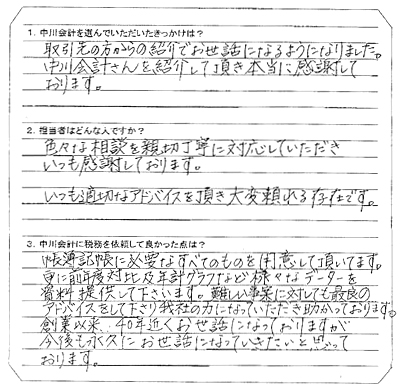 1. 中川会計を選んでいただいたきっかけは？
取引先の方からの紹介でお世話になるようになりました。
中川会計さんを紹介して頂き本当に感謝して
おります。
2. 担当者はどんな人ですか？
色々な相談を親切丁寧に対応していただき
いつも感謝しております。
いつも適切なアドバイスを頂き大変頼れる存在です。
3. 中川会計に税務を依頼して良かった点は？
帳簿記帳に必要なすべてのものを用意して頂いてます。
更に前年度対比及年計グラフなど様々なデーターを
資料提供して下さいます。難しい事案に対しても最良の
アドバイスをして下さり我社の力になっていただき助かっております。
創業以来、40年近くお世話になっておりますが
今後も永久にお世話になっていきたいと思って
おります。